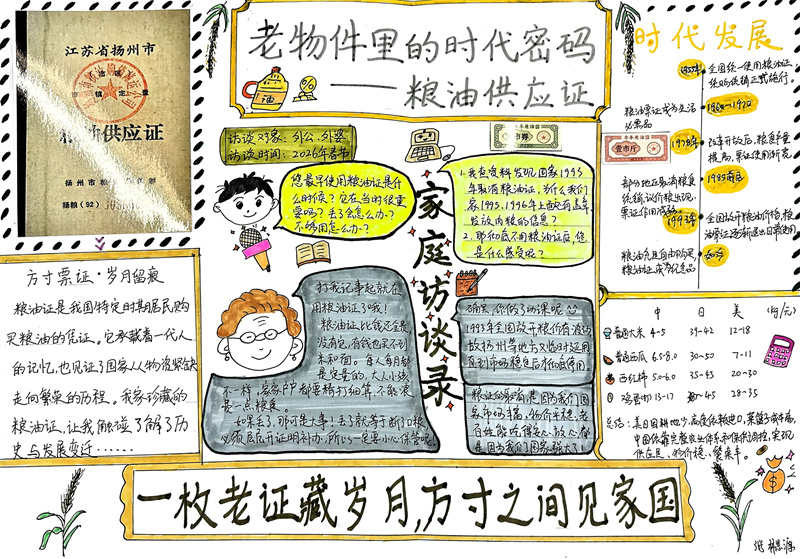 老物件里的时代密码
——粮油供应证
江苏省扬州市
粮油供应证
扬粮(92)
方寸票证·岁月留痕
粮油证是我国特定时期居民购
买粮油的凭证。它承载着一代人
的记忆,也见证了国家从物资紧缺
走向繁荣的历程。我家珍藏的
粮油证,让我触碰了解了历
史与发展变迁……
访谈对象:外公、外婆
访谈时间:2026年春节
家庭访谈录
您最早使用粮油证是什
么时候?它在当时很重
要吗?丢了会怎么办?
不够用怎么办?
打我记事起就在
用粮油证了哦!
粮油证比钱还金贵,
没有它,有钱也买不到
米和面。每人每月都
是定量的,大人小孩
不一样,家家户户都要精打细算,不能浪
费一点粮食。
如果丢了,那可是大事!丢了就等于断了口粮
必须居民开证明补办,所以一定要小心保管呢!
1.我查资料发现国家1993
年取消粮油证,为什么我们
家1995、1996年上面
2.那彻底不用粮油证后,您
是什么感受呢?
确实,你做了功课呢
1993年全国放开粮价有波动
故扬州等地方又临时延用
直到市场稳定后才彻底停用。
家市场丰富,物价平稳,老
百姓能吃得安心、放心,都
是因为我们国家强大了!
时代发展
1955年
全国统一使用粮油证
统购统销正式施行。
粮油票证成为生活
必需品
壹市斤
1978年
改革开放后,粮食产量
提高,票证使用渐宽。
1985前后
部分地区取消粮食
统销,议价粮出现,
1993年
全国放开粮油价格,粮
油票证逐渐退出日常使用
如今
粮油充足自由购买,
粮油证成为纪念品
中 日 美 (旬/元)
普通大米 4-5 39-42 12-18
普通西瓜 6.5-8.0 30-50 7-11
西红柿 5.0-6.0 35-45 20-30
鸡蛋 13-17 45 28-35
总结:美日因耕地少、高度依赖进口,
中国依靠完整农业体系和保供调控,实现
供应足、物价稳、餐桌丰。
一枚老证藏岁月,方寸之间见家国